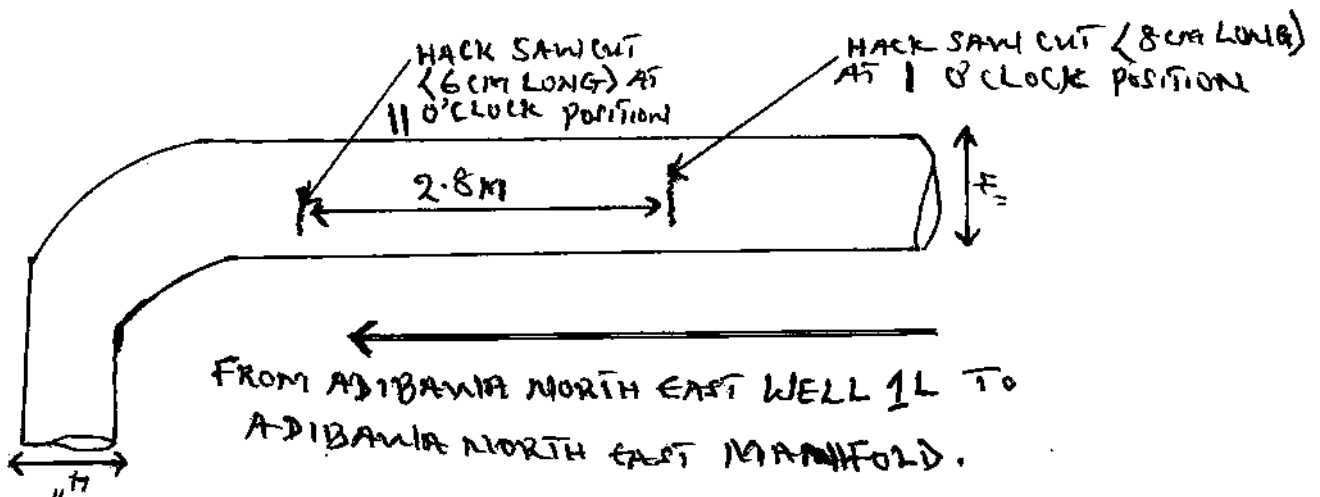 HACK SAW CUT
<6 CM LONG> AT
11 O'CLOCK POSITION
HACK SAW CUT <8 CM LONG>
AT 1 O'CLOCK POSITION
2.8M
4"
FROM ADIBAWA NORTH EAST WELL 1L TO
ADIBAWA NORTH EAST MANIFOLD.
4"